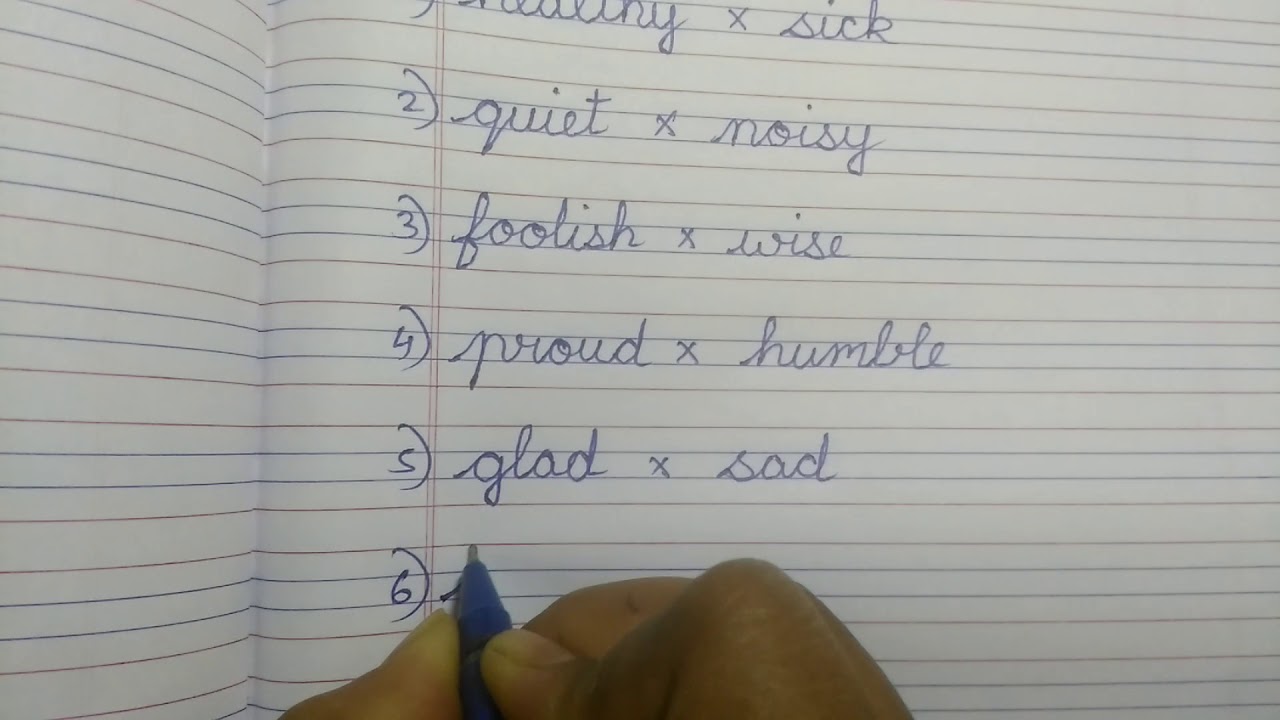 healthy × sick
2) quiet × noisy
3) foolish × wise
4) proud × humble
5) glad × sad
6)